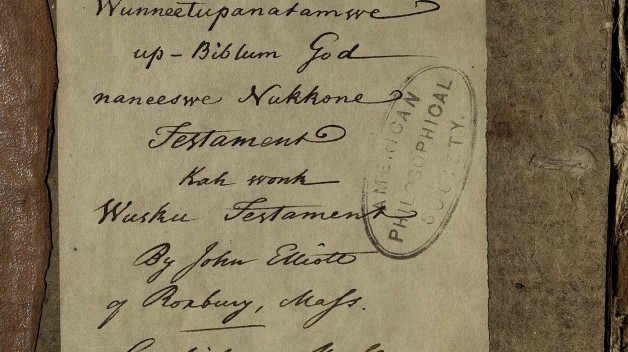 Wunneetupanatamwe
up-Biblum God
naneeswe Nukkone
Testament
Kah wonk
Wusku Testament
By John Elliott
of Roxbury, Mass.
AMERICAN
PHILOSOPHICAL
SOCIETY.